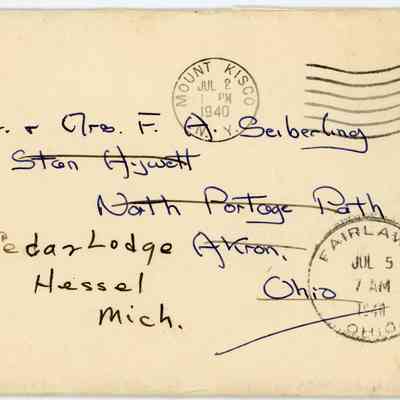 MOUNT KISCO
JUL 2
1 PM
1940
N.Y.
r. & Mrs. F. A. Seiberling
Stan Hywett
North Portage Path
Cedar Lodge Akron,
Hessel Ohio
Mich.
FAIRLAW
JUL 5
7 AM
OHIO